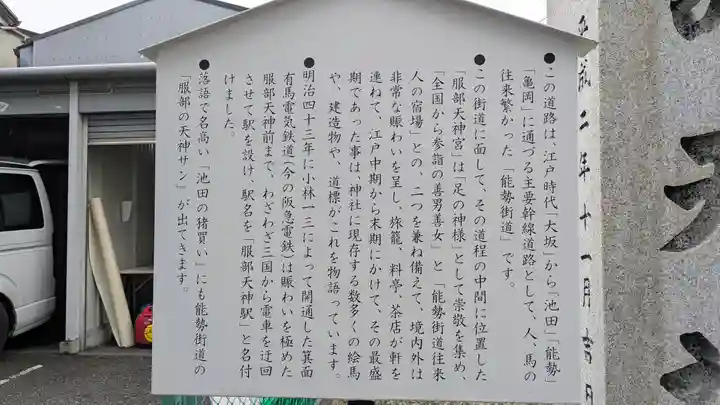 ●この道路は、江戸時代「大坂」から「池田」「能勢」
「亀岡」に通づる主要幹線道路として、人、馬の
往来繁かった「能勢街道」です。
●この街道に面して、その道程の中間に位置した
「服部天神宮」は「足の神様」として崇敬を集め、
「全国から参詣の善男善女」と「能勢街道往来
人の宿場」との、二つを兼ね備えて、境内外は
非常な賑わいを呈し、旅籠、料亭、茶店が軒を
連ねて、江戸中期から末期にかけて、その最盛
期であった事は、神社に現存する数多くの絵馬
や、建造物や、道標がこれを物語っています。
●明治四十三年に小林一三によって開通した箕面
有馬電気鉄道(今の阪急電鉄)は賑わいを極めた
服部天神前まで、わざわざ三国から電車を迂回
させて駅を設け、駅名を「服部天神駅」と名付
けました。
●落語で名高い「池田の猪買い」にも能勢街道の
「服部の天神サン」が出てきます。
平成二年十一月吉日